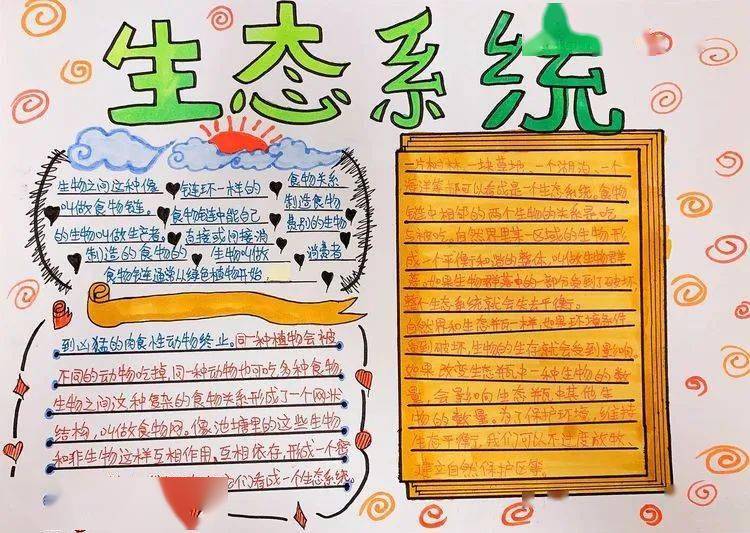 生态系统
生物之间这种像链环一样的食物关系
叫做食物链。食物链中能自己制造食物
的生物叫做生产者。直接或间接消费别的生物
制造的食物的生物叫做消费者
食物链通常从绿色植物开始,
到凶猛的肉食性动物终止。同一种植物会被
不同的动物吃掉,同一种动物也可吃多种食物,
生物之间这种复杂的食物关系形成了一个网状
结构,叫做食物网。像池塘里的这些生物
和非生物这样互相作用,互相依存,形成一个密
们看成一个生态系统。
一片树林、一块草地、一个湖泊、一个
海洋等都可以看成是一个生态系统。食物
链中相邻的两个生物的关系是吃
与被吃。自然界里某一区域的生物形
成一个平衡和谐的整体,叫做生物群
落。如果生物群落中的一部分受到了破坏
整个生态系统就会失去平衡。
自然界和生态瓶一样,如果环境条件
受到破坏,生物的生存就会受到影响。
如果改变生态瓶中一种生物的数
量,会影响生态瓶中其他生
物的数量。为了保护环境,维持
生态平衡,我们可以不过度放牧、
建立自然保护区等。